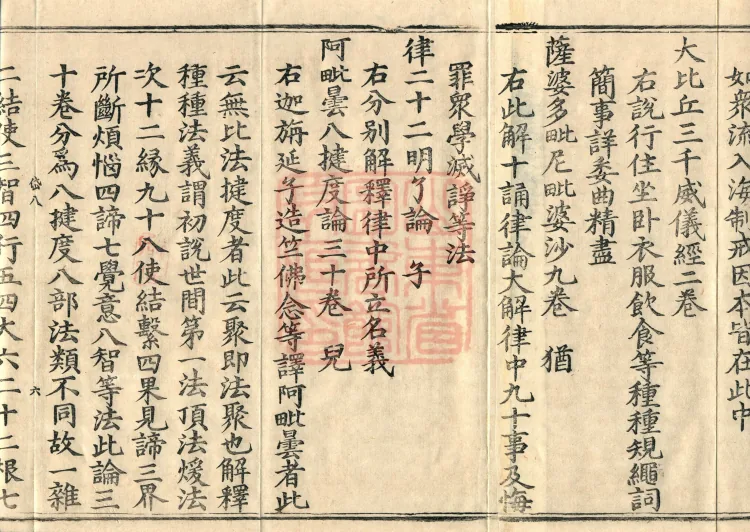 如眾流入海制戒因本皆在此中
大比丘三千威儀經二卷
右說行住坐卧衣服飲食等種種規繩詞
簡事詳委曲精盡
薩婆多毗尼毗婆沙九卷 猶
右此解十誦律論大解律中九十事及悔
罪眾學滅諍等法
律二十二明了論 子
右分別解釋律中所立名義
阿毗曇八揵度論三十卷 兒
右迦旃延子造竺佛念等譯阿毗曇者此
云無比法揵度者此云聚即法聚也解釋
種種法義謂初說世間第一法頂法煖法
次十二緣九十八使結繫四果見諦三界
所斷煩惱四諦七覺意八智等法此論三
十卷分為八揵度八部法類不同故一雜
岱八 六
二結使三智四行五四大六二十二根七